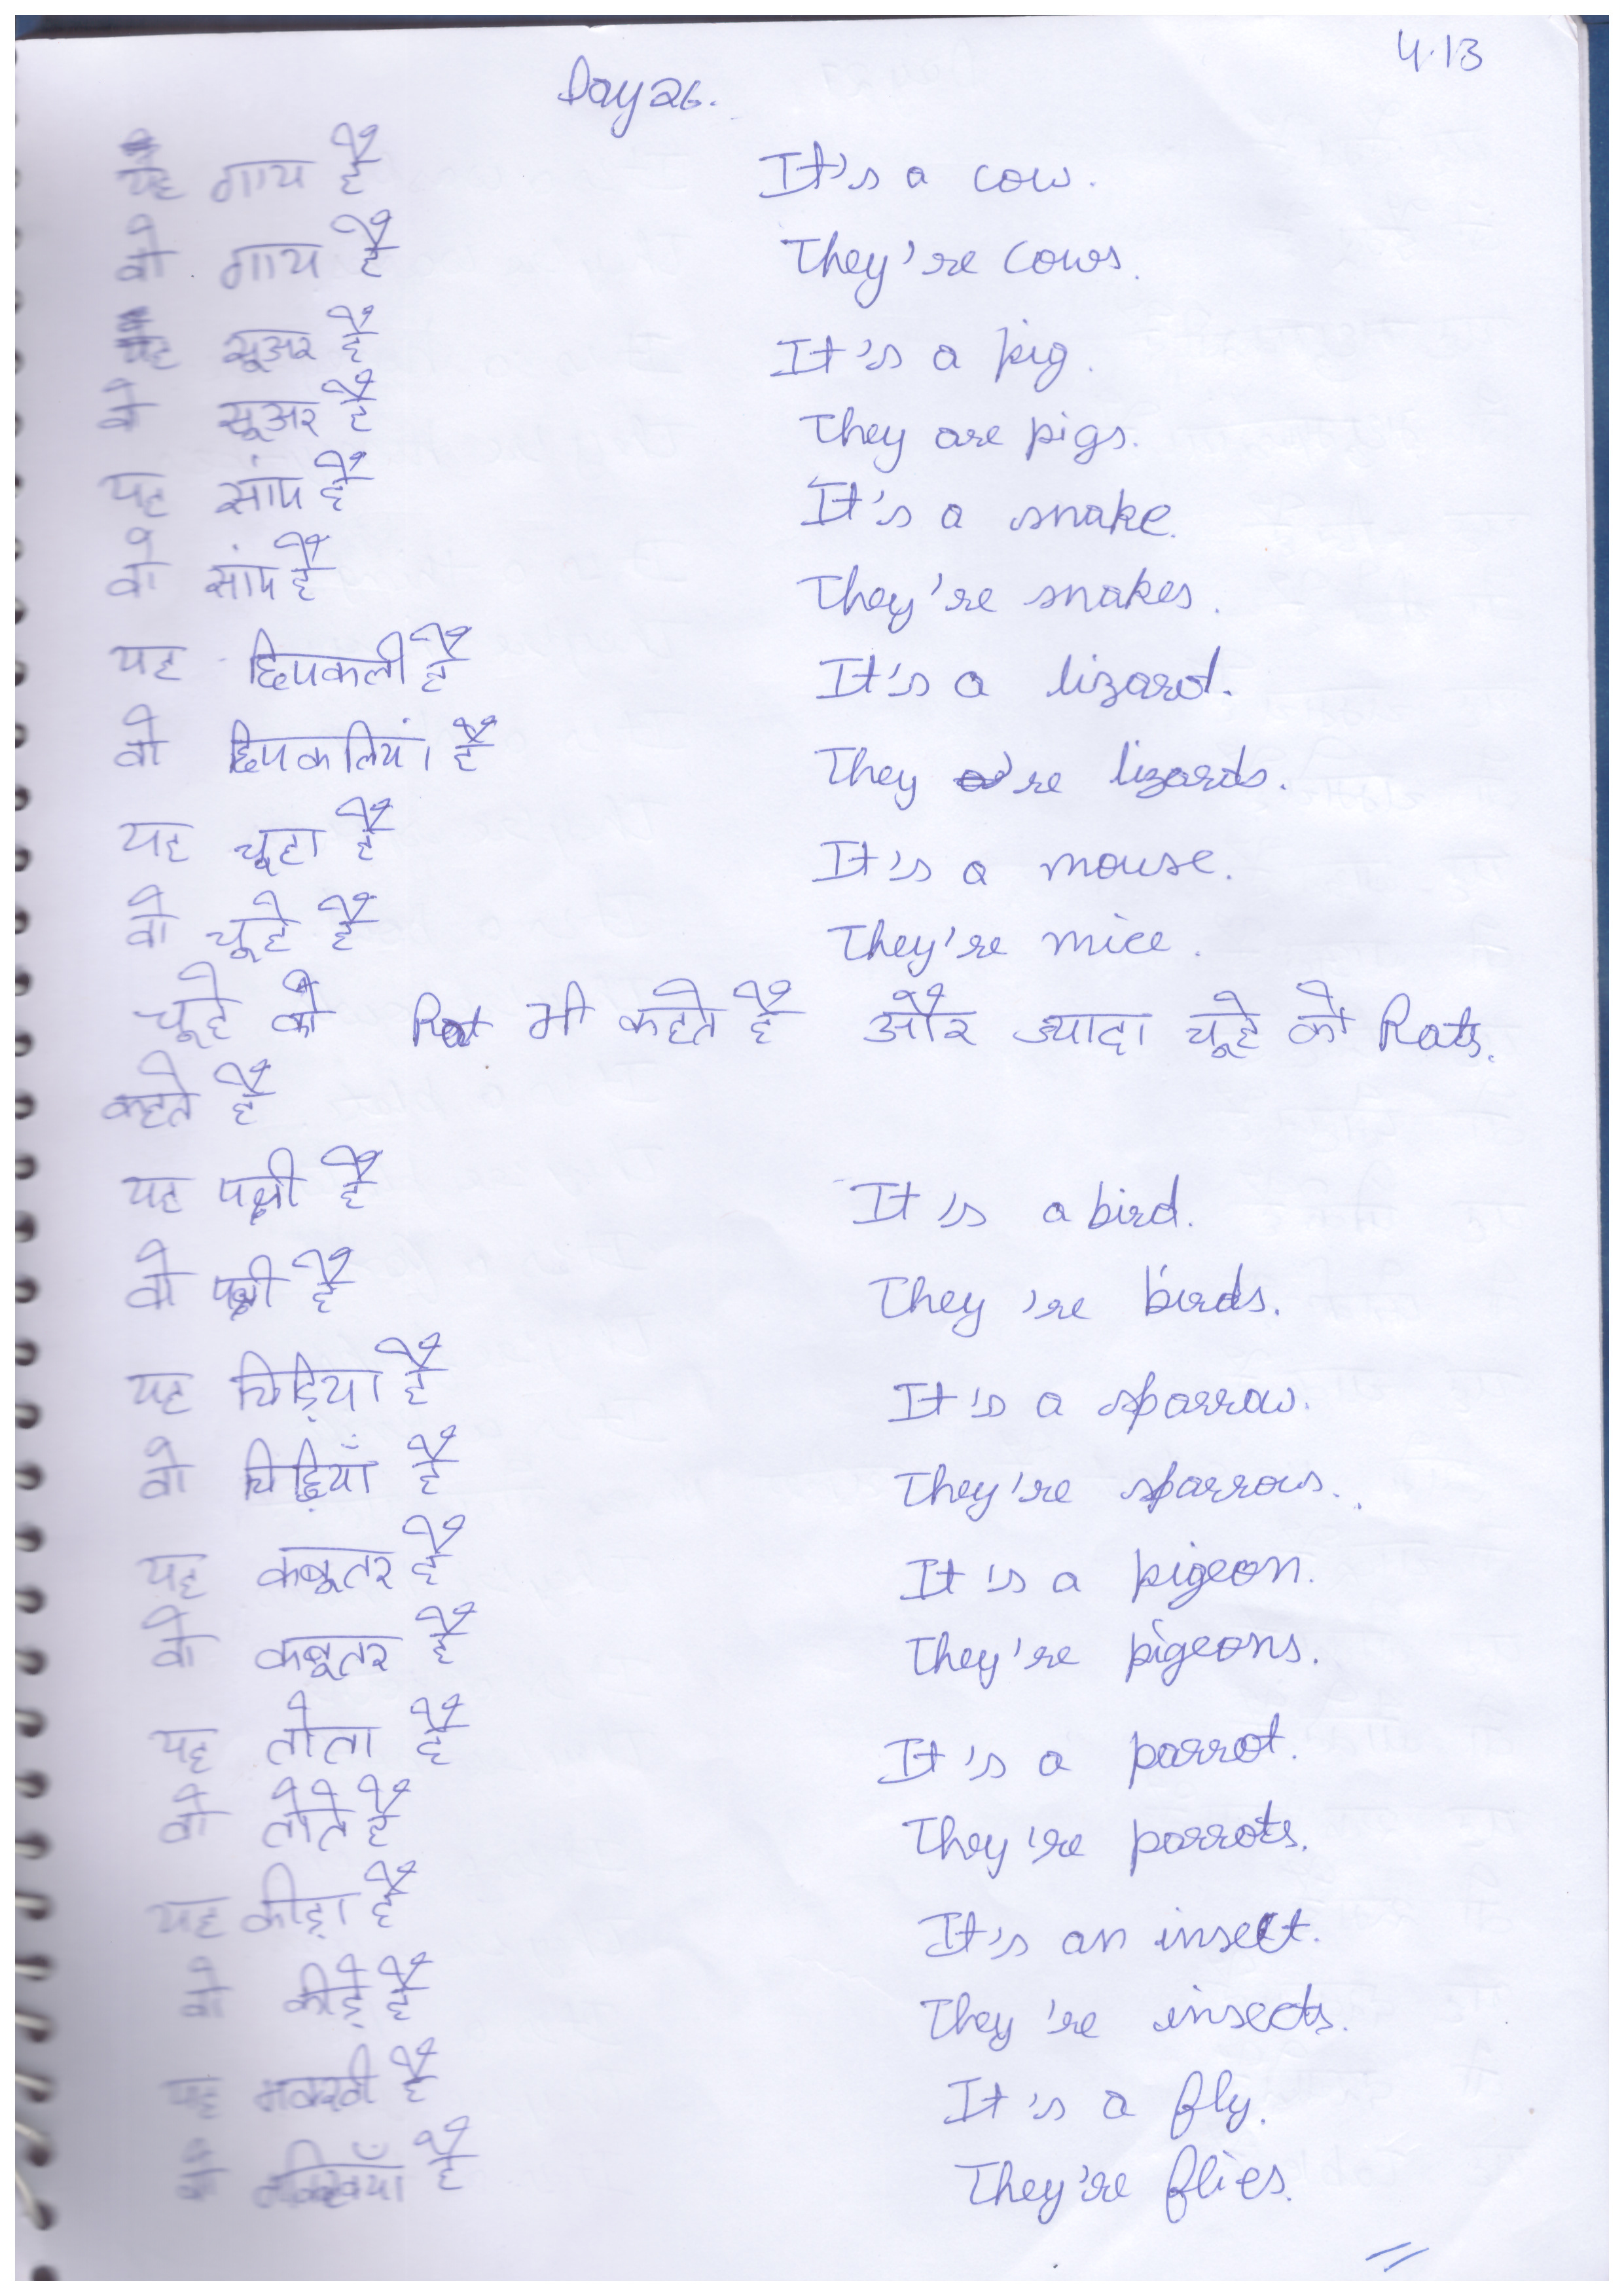 4.13
Day 26.
यह गाय है It's a cow.
वो गाय हैं They're cows.
यह सूअर है It's a pig.
वो सूअर हैं They are pigs.
यह सांप है It's a snake.
वो सांप हैं They're snakes.
यह छिपकली है It's a lizard.
वो छिपकलियां हैं They 're lizards.
यह चूहा है It's a mouse.
वो चूहे हैं They're mice.
चूहे को Rat भी कहते हैं और ज्यादा चूहे को Rats.
कहते हैं
यह पक्षी है It's a bird.
वो पक्षी हैं They 're birds.
यह चिड़िया है It's a sparrow.
वो चिड़ियाँ हैं They're sparrows.
यह कबूतर है It's a pigeon.
वो कबूतर हैं They're pigeons.
यह तोता है It's a parrot.
वो तोते हैं They're parrots.
यह कीड़ा है It's an insect.
वो कीड़े हैं They're insects.
यह मक्खी है It's a fly.
वो मक्खियाँ हैं They're flies.